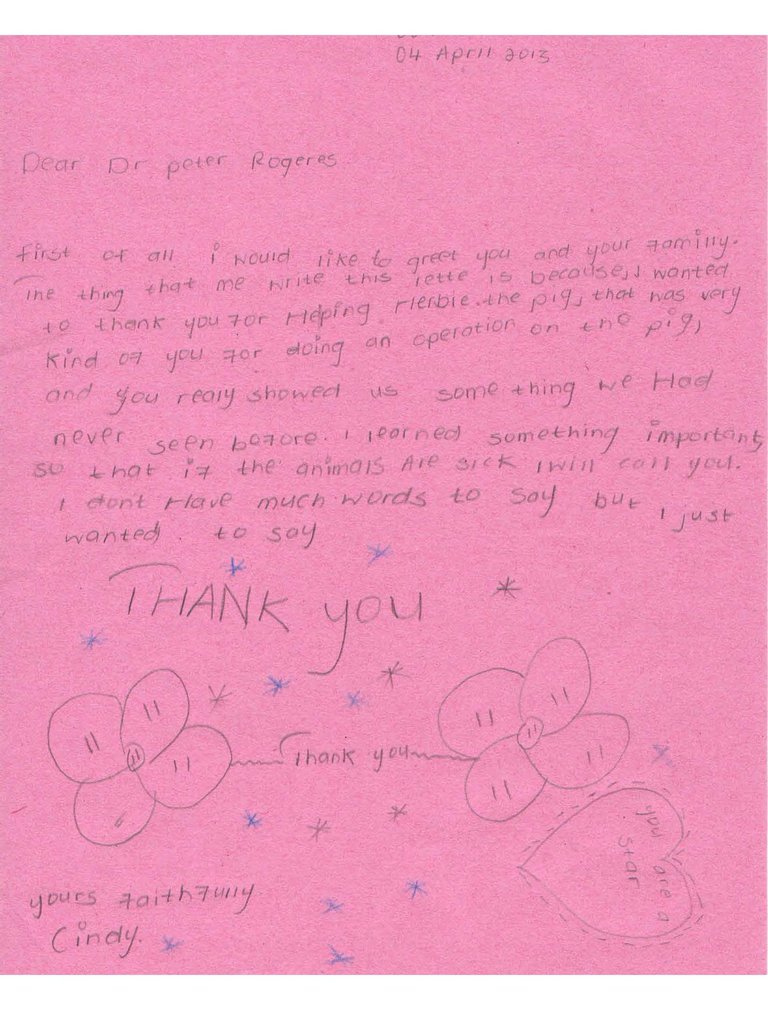 04 April 2013
Dear Dr peter Rogeres
first of all i would like to greet you and your familly.
The thing that me write this lette is because, I wanted
to thank you for Helping Herbie. the pig, that was very
kind of you for doing an operation on the pig,
and you realy showed us some thing we Had
never seen before. I learned something important,
so that if the animals Are sick I will call you.
I dont Have much words to say but I just
wanted. to say
THANK you
Thank you
you are a
star
yours faithfully
Cindy.